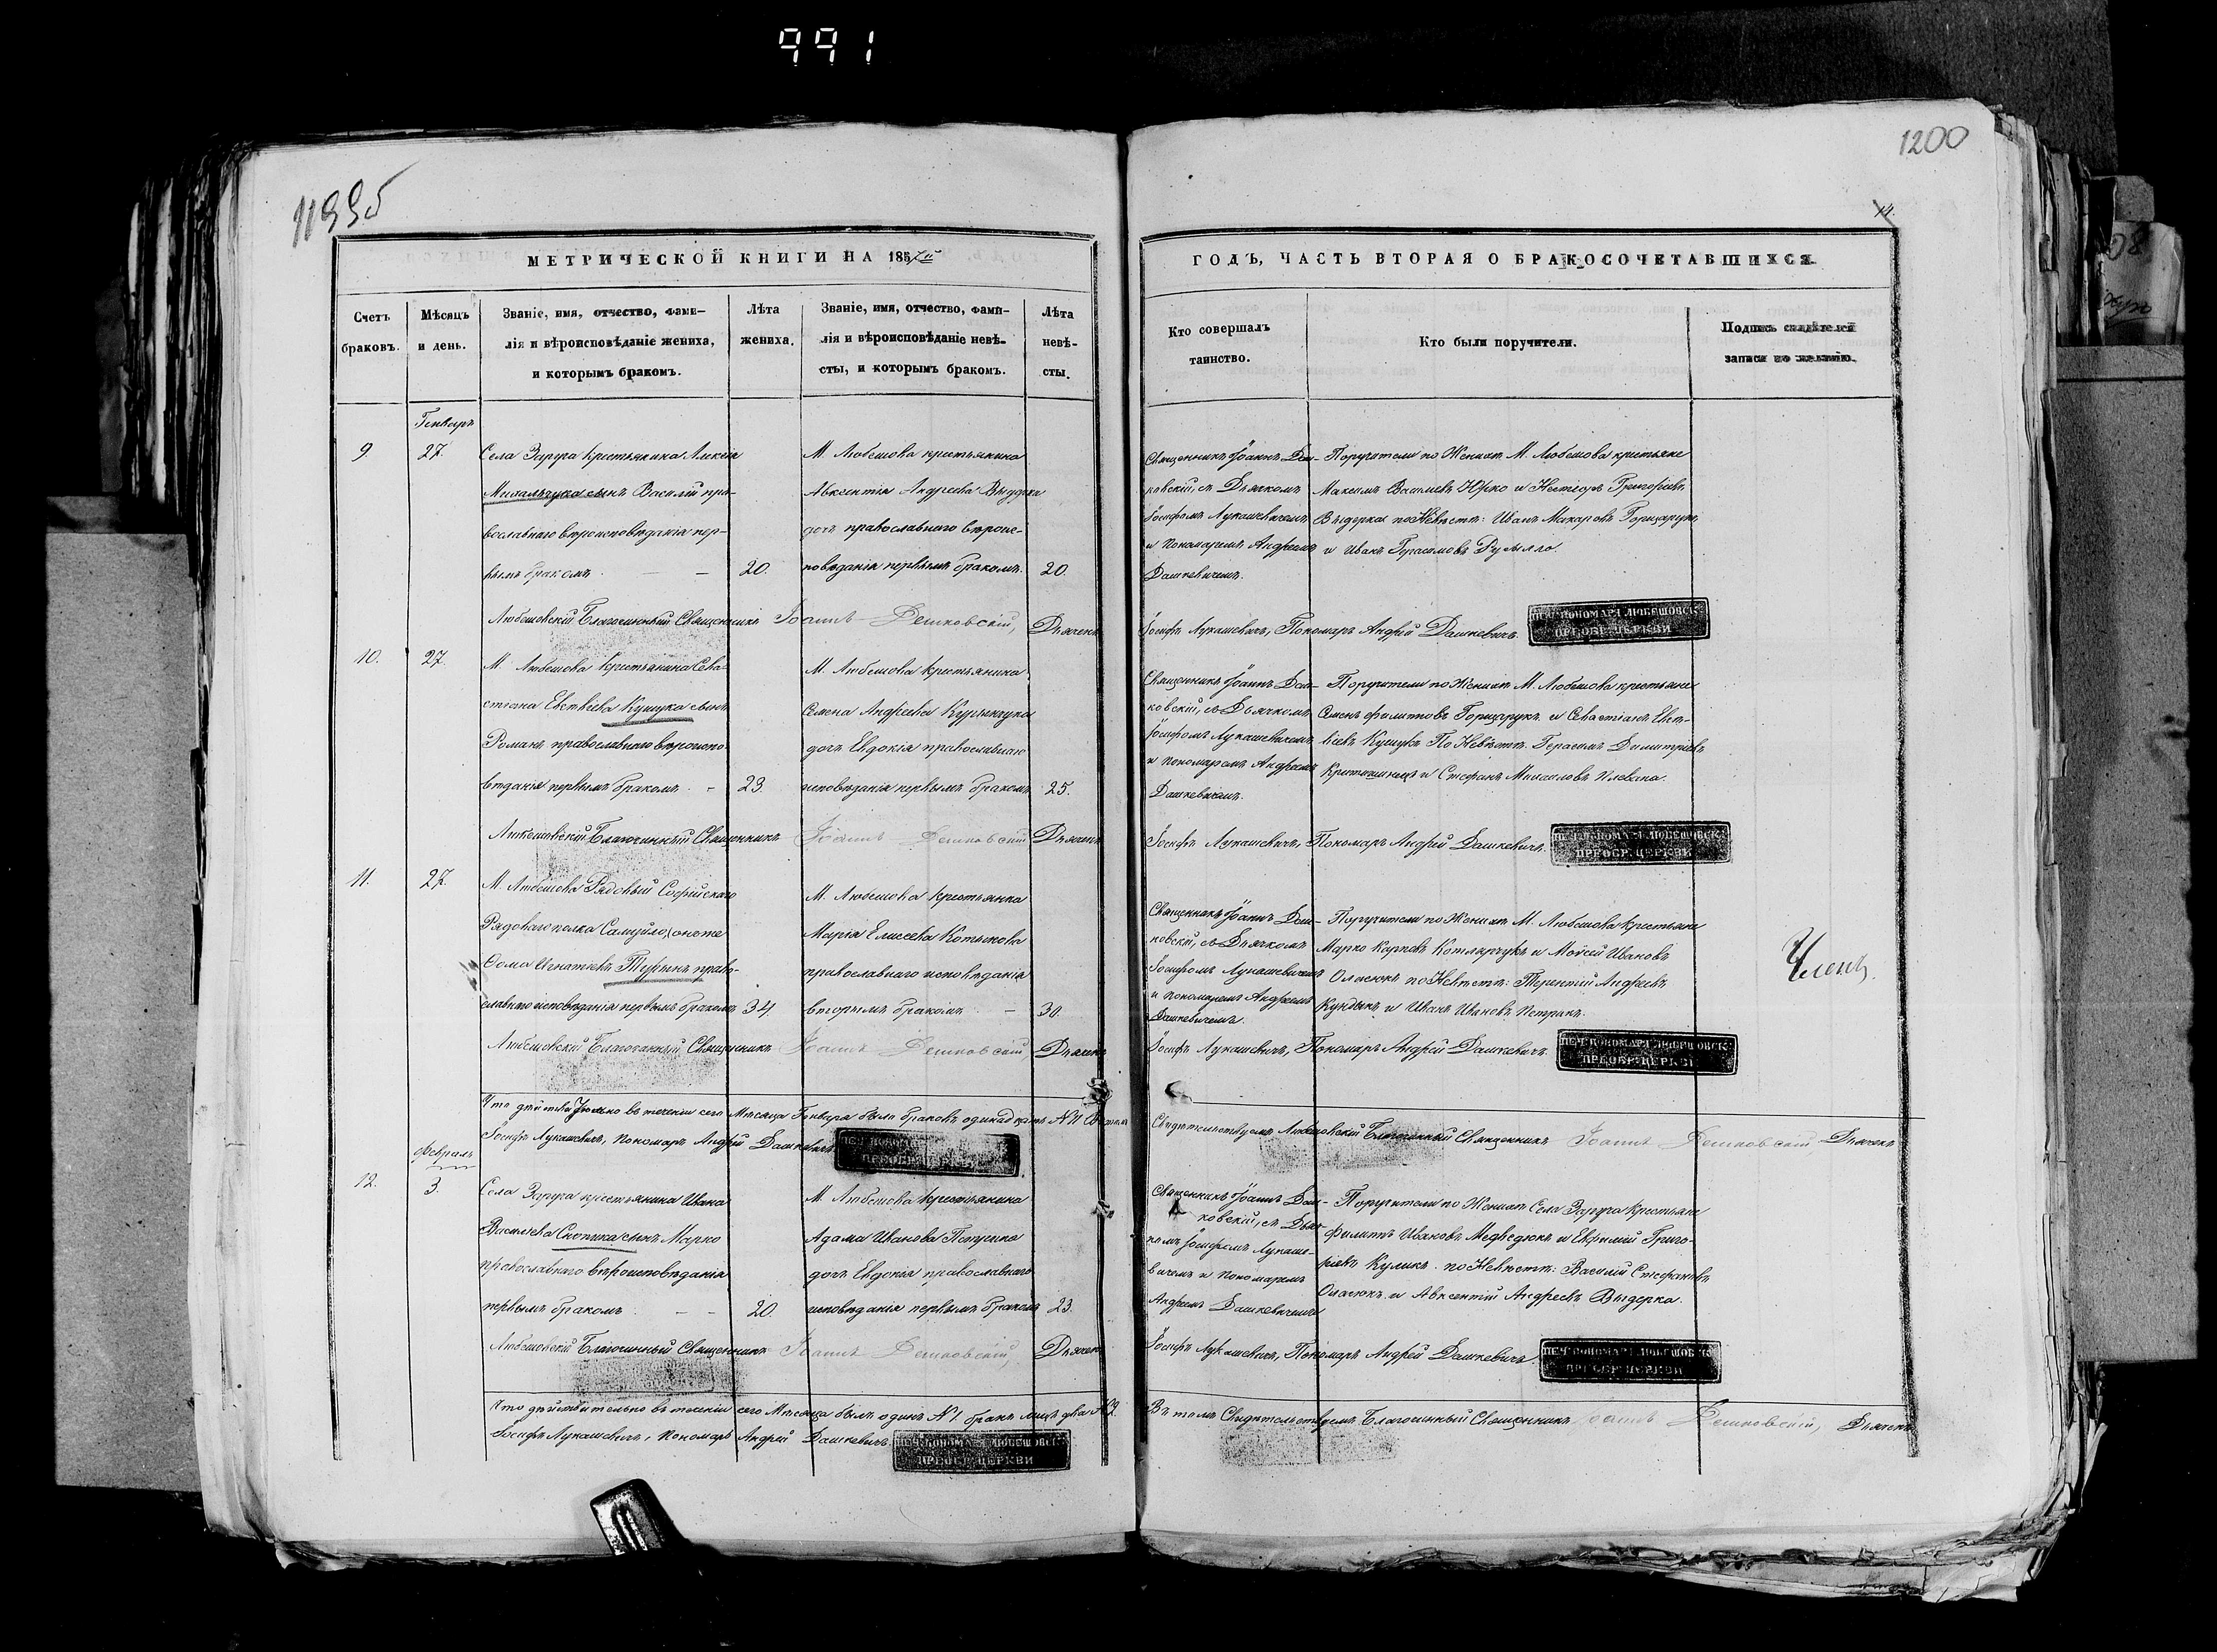 991
1200
1199б
14.
МЕТРИЧЕСКОЙ КНИГИ НА 1857й
ГОДЪ, ЧАСТЬ ВТОРАЯ О БРАКОСОЧЕТАВШИХСЯ.
Счетъ браковъ.
Мѣсяцъ и день.
Званіе, имя, отчество, фами-
лія и вѣроисповѣданіе жениха,
и которымъ бракомъ.
Лѣта жениха.
Званіе, имя, отчество, фами-
лія и вѣроисповѣданіе невѣ-
сты, и которымъ бракомъ.
Лѣта невѣ-
сты.
Кто совершалъ
таинство.
Кто были поручители.
Подпись свидѣтелей
записи по желанію.
Генварь
9.
27.
Села Заруга крестьянина Алексія
Михальчука сынъ Василій пра-
вославнаго вѣроисповѣданія пер-
вымъ бракомъ — —
20.
М. Любешова крестьянина
Авксентія Андреева Выдерки
дочь православнаго вѣроис-
повѣданія первымъ бракомъ.
20.
Священникъ Іоаннъ Деш-
ковскій, съ Дьячкомъ
Іосифомъ Лукашевичемъ
и Пономаремъ Андреемъ
Дашкевичемъ.
Поручители по Женихѣ М. Любешова крестьяне
Максимъ Васильевъ Юрко и Несторъ Григорьевъ
Выдерка по Невѣстѣ: Иванъ Макаровъ Горщарукъ
и Иванъ Герасимовъ
Любешовскій Благочинный Священникъ Іоаннъ Дешковскій, Дьячекъ
Іосифъ Лукашевичъ, Пономарь Андрей Дашкевичъ
ПЕЧ: ПОНОМАРЯ ЛЮБЕШОВСК:
ПРЕОБР: ЦЕРКВИ
10.
27.
М. Любешова крестьянина Сева-
стіана Евстѣева Куцука сынъ
Романъ православнаго вѣроиспо-
вѣданія первымъ бракомъ. —
23.
М. Любешова крестьянина
Семена Андреева
дочь Евдокія православнаго
исповѣданія первымъ бракомъ
25.
Священникъ Іоаннъ Деш-
ковскій, съ Дьячкомъ
Іосифомъ Лукашевичемъ
и пономаремъ Андреемъ
Дашкевичемъ.
Поручители по Женихѣ М. Любешова крестьяне
Семенъ Филиповъ Горщарукъ и Севастіанъ Евст-
ѣевъ Куцукъ По Невѣстѣ. Герасимъ Димитріевъ
и Стефанъ Михаиловъ
Любешовскій Благочинный Священникъ Іоаннъ Дешковскій Дьячекъ
Іосифъ Лукашевичъ, Пономарь Андрей Дашкевичъ.
ПЕЧ: ПОНОМАРЯ ЛЮБЕШОВСК:
ПРЕОБР: ЦЕРКВИ
11.
27.
М. Любешова Рядовый Софійскаго
Рядоваго полка Самуйло, онъже
Ѳома Игнатіевъ Турыкъ право-
славнаго исповѣданія первымъ бракомъ
34.
М. Любешова крестьянка
Марія Елисеева Котыкова
православнаго исповѣданія
вторымъ бракомъ —
30.
Священникъ Іоаннъ Деш-
ковскій, съ Дьячкомъ
Іосифомъ Лукашевичемъ
и пономаремъ Андреемъ
Дашкевичемъ.
Поручители по Женихѣ М. Любешова крестьяне
Марко Карповъ Котлярчукъ и Моѵсей Ивановъ
Оласюкъ по Невѣстѣ: Терентій Андреевъ
Кундыкъ и Иванъ Ивановъ Петрикъ.
Членъ
Любешовскій Благочинный Священникъ Іоаннъ Дешковскій Дьячекъ
Іосифъ Лукашевичъ, Пономарь Андрей Дашкевичъ
ПЕЧ: ПОНОМАРЯ ЛЮБЕШОВСК:
ПРЕОБР: ЦЕРКВИ
Что дѣйствительно въ теченіи сего Мѣсяца Генваря было браковъ одинадцать №11
Свидѣтельствуемъ Любешовскій Благочинный Священникъ Іоаннъ Дешковскій, Дьячекъ
Іосифъ Лукашевичъ, Пономарь Андрей Дашкевичъ
ПЕЧ: ПОНОМ
ПРЕОБР: ЦЕРКВИ
Февраль
12.
3.
Села Заруга крестьянина Ивана
Васильева сынъ Марко
православнаго вѣроисповѣданія
первымъ бракомъ — —
20.
М. Любешова крестьянина
Адама Иванова
дочь Евдокія православнаго
исповѣданія первымъ бракомъ
23.
Священникъ Іоаннъ Деш-
ковскій, съ Дьяч-
комъ Іосифомъ Лукаше-
вичемъ и пономаремъ
Андреемъ Дашкевичемъ
Поручители по Женихѣ Села Заруга крестьяне
Филипъ Ивановъ Медведюкъ и Евфимій Григо-
рьевъ Куликъ. по Невѣстѣ: Василій Стефановъ
Оласюкъ и Авксентій Андреевъ Выдерка.
Любешовскій Благочинный Священникъ Іоаннъ Дешковскій, Дьячекъ
Іосифъ Лукашевичъ, Пономарь Андрей Дашкевичъ
ПЕЧ: ПОНОМАРЯ ЛЮБЕШОВСК:
ПРЕОБР: ЦЕРКВИ
Что дѣйствительно въ теченіи сего Мѣсяца былъ одинъ №1 бракъ лицъ два №2
Въ томъ Свидѣтельствуемъ Благочинный Священникъ Іоаннъ Дешковскій, Дьячекъ
Іосифъ Лукашевичъ, Пономарь Андрей Дашкевичъ
ПЕЧ: ПОНОМАРЯ ЛЮБЕШОВСК:
ПРЕОБР: ЦЕРКВИ